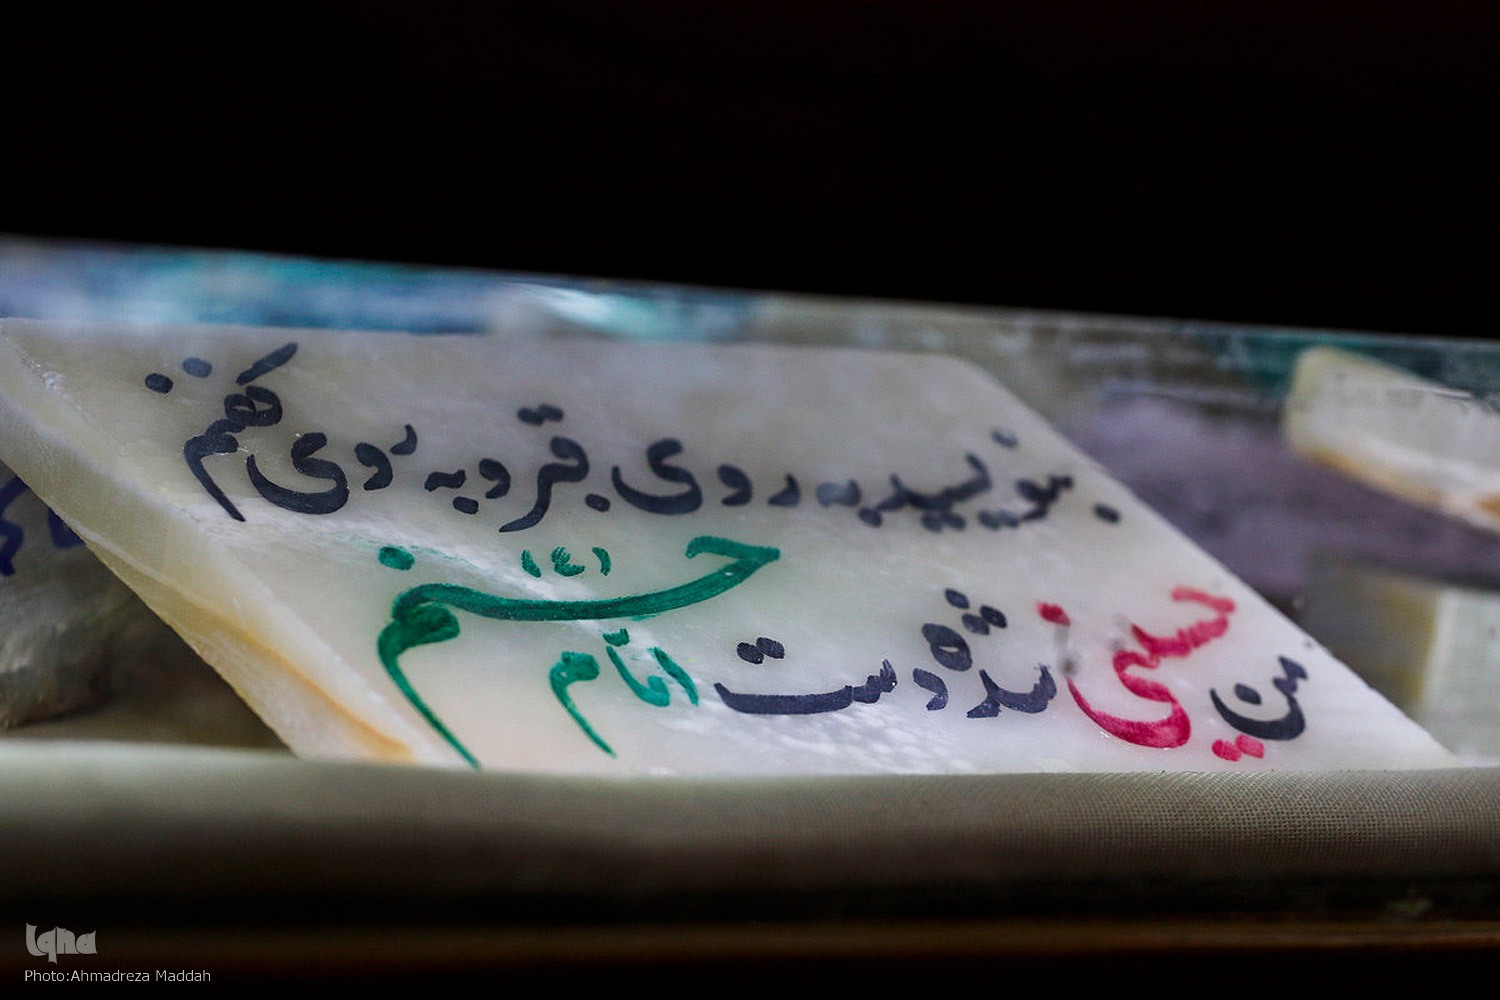 بنویسید به روی قبر و به روی کفنم
من حسینی شده دست امام حسنم (ع)
Iqna
Photo:Ahmadreza Maddah